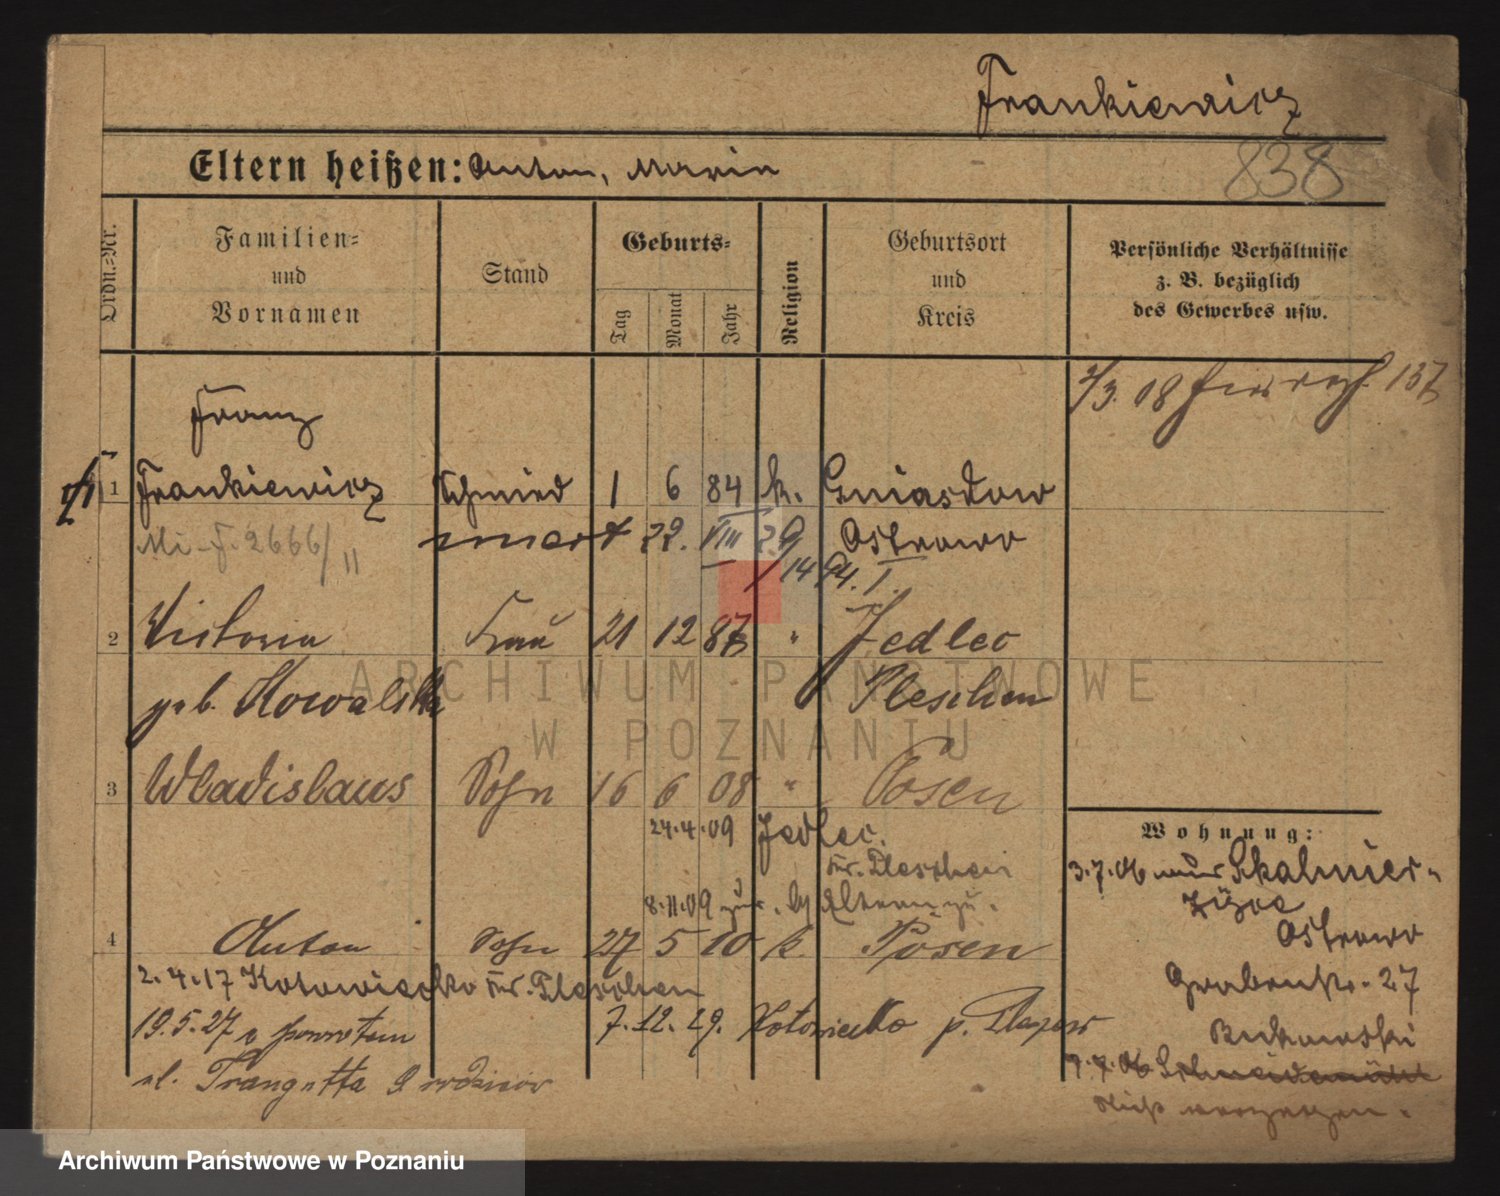 Frankiewicz
Eltern heißen: Anton, Maria
838
Ordn.=Nr.
Familien= und Vornamen
Stand
Geburts=
Tag
Monat
Jahr
Religion
Geburtsort und Kreis
Persönliche Verhältnisse z. B. bezüglich des Gewerbes usw.
2/3. 08 137
Franz
1 Frankiewicz Schmied 1 6 84 k. Gniasdow
Mi-F. 2666/II
zmarł 22. VIII 29 Ostrowo
1/14 94. I.
2 Victoria Frau 21 12 87 " Jedlec
geb. Kowalska Pleschen
3 Wladislaus Sohn 16 6 08 " Posen
24.4.09 Jedlec.
Kr. Pleschen
8.11.09 zur. Eltern zu.
4 Anton Sohn 27 5 10 k. Posen
2.4.17 Kotowiecko Kr. Pleschen
19.5.27 z powrotem 7.12.29. Kotowiecko p. Pleszew
ul. Traugutta 9 rodziców
Wohnung:
3.7.06 von Skalmier-
zyce
Ostrowo
Grabenstr. 27
Bukowski
9.7.06 Schneidemühl
verzogen.
ARCHIWUM PAŃSTWOWE
W POZNANIU
Archiwum Państwowe w Poznaniu